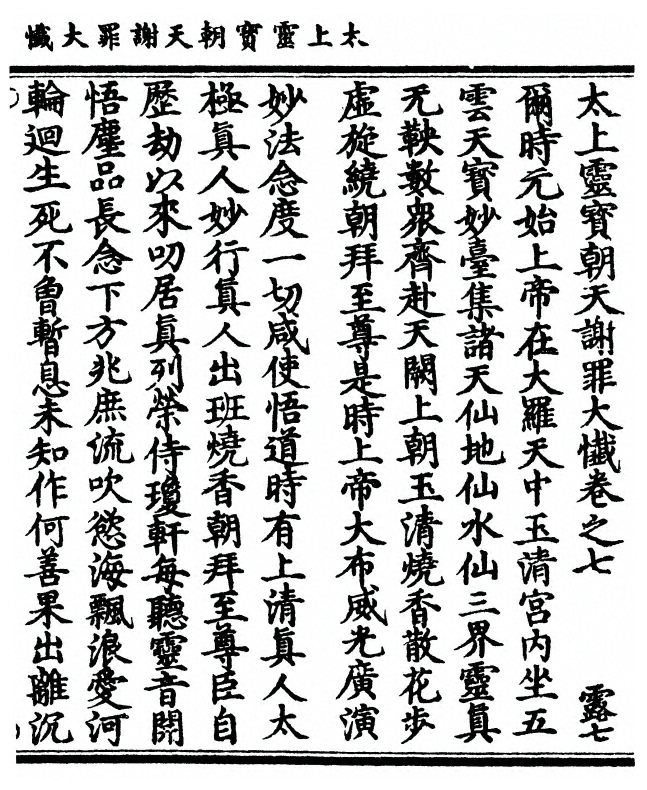 太上靈寶朝天謝罪大懺
太上靈寶朝天謝罪大懺卷之七　露七
爾時元始上帝在大羅天中玉清宮內坐五
雲天寶妙臺集諸天仙地仙水仙三界靈眞
无鞅數衆齊赴天闕上朝玉清燒香散花步
虛旋繞朝拜至尊是時上帝大布威光廣演
妙法念度一切咸使悟道時有上清眞人太
極眞人妙行眞人出班燒香朝拜至尊臣自
歷劫以來叨居眞列榮侍瓊軒每聽靈音開
悟塵品長念下方兆庶流吹慾海飄浪愛河
輪迴生死不曾暫息未知作何善果出離沉